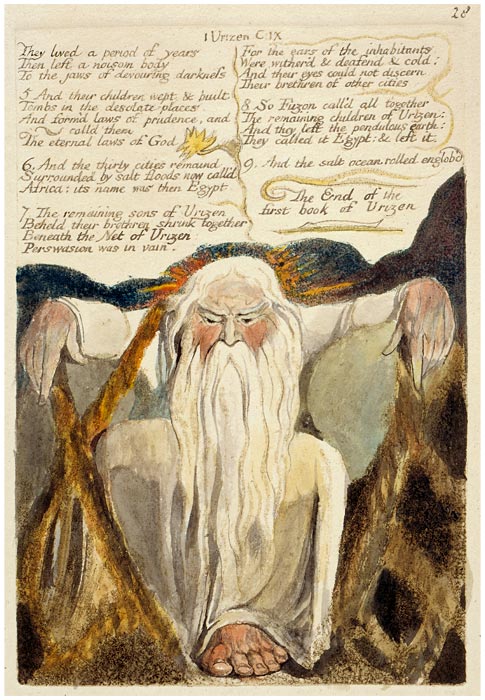 28
1 Urizen C: IX
They lived a period of years
Then left a noisom body
To the jaws of devouring darkness
5. And their children wept, & built
Tombs in the desolate places,
And form'd laws of prudence, and
call'd them
The eternal laws of God
6. And the thirty cities remaind
Surrounded by salt floods now call'd
Africa: its name was then Egypt
7. The remaining sons of Urizen
Beheld their brethren shrink together
Beneath the Net of Urizen
Perswasion was in vain.
For the ears of the inhabitants
Were wither'd & deafen'd & cold:
And their eyes could not discern
Their brethren of other cities
8. So Fuzon call'd all together
The remaining children of Urizen:
And they left the pendulous earth:
They called it Egypt, & left it.
9. And the salt ocean rolled englob'd
The End of the
first book of Urizen